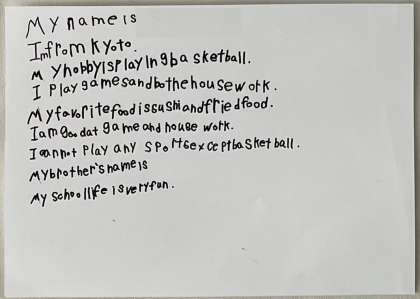 My name is
I'm from Kyoto.
My hobby is playing basketball.
I play games and do the housework.
My favorite food is sushi and fried food.
I am good at game and house work.
I cannot play any sports except basketball.
My brother's name is
My school life is very fun.